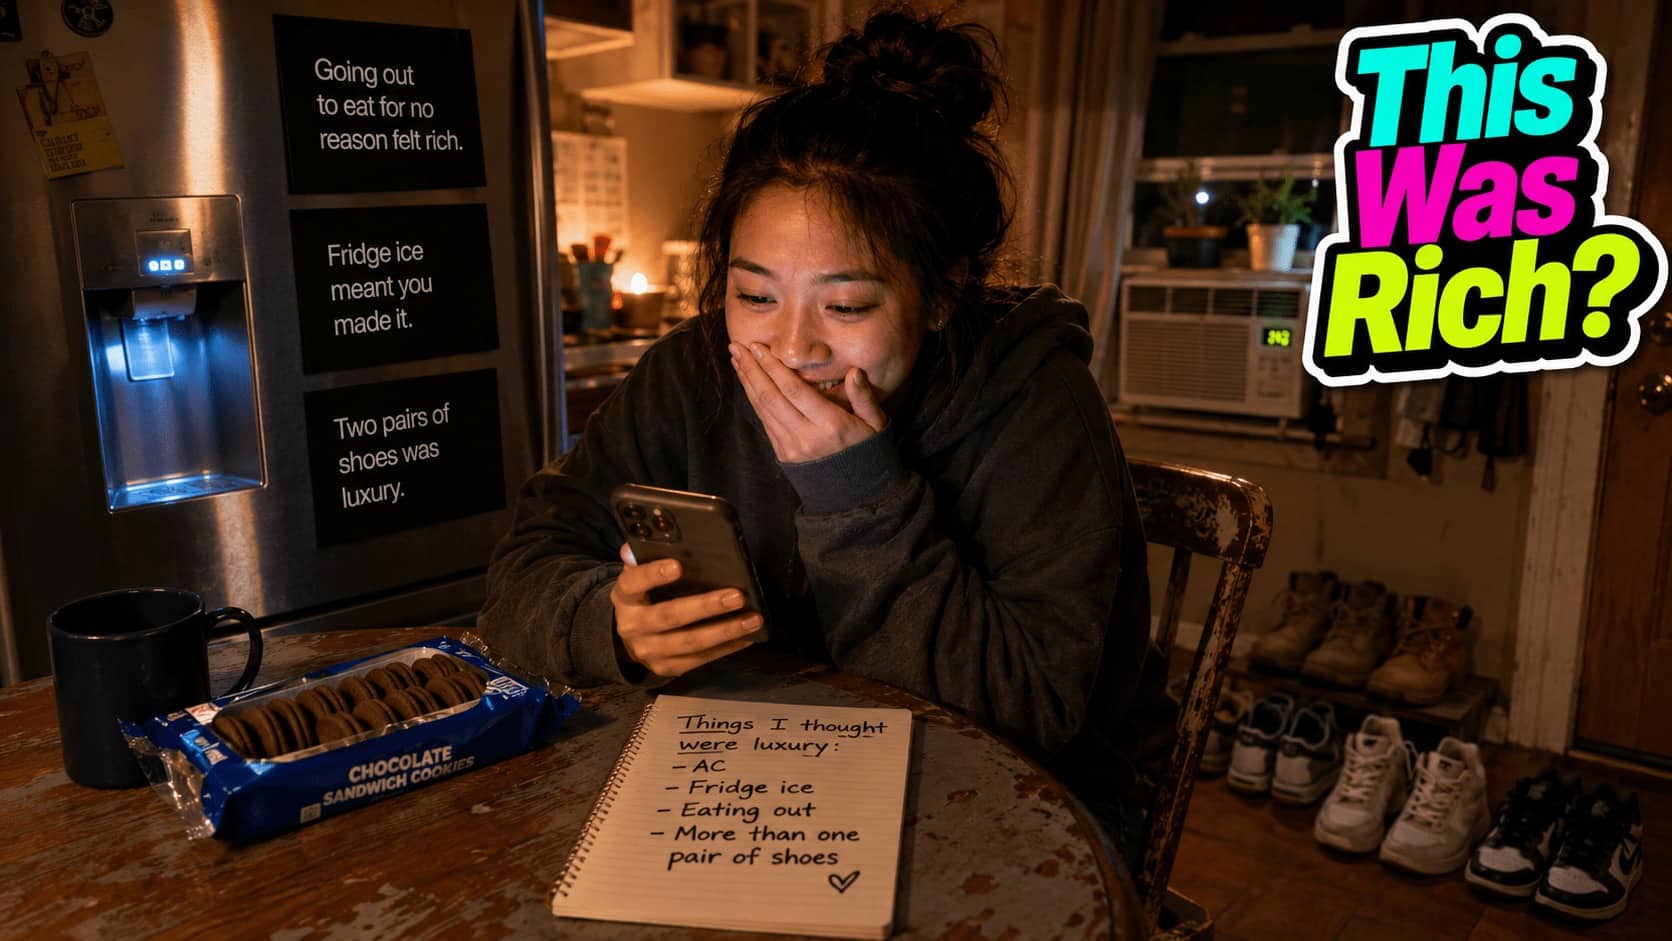 Going out
to eat for no
reason felt rich.
Fridge ice
meant you
made it.
Two pairs of
shoes was
luxury.
This
Was
Rich?
CHOCOLATE
SANDWICH COOKIES
Things I thought
were luxury:
- AC
- Fridge ice
- Eating out
- More than one
pair of shoes